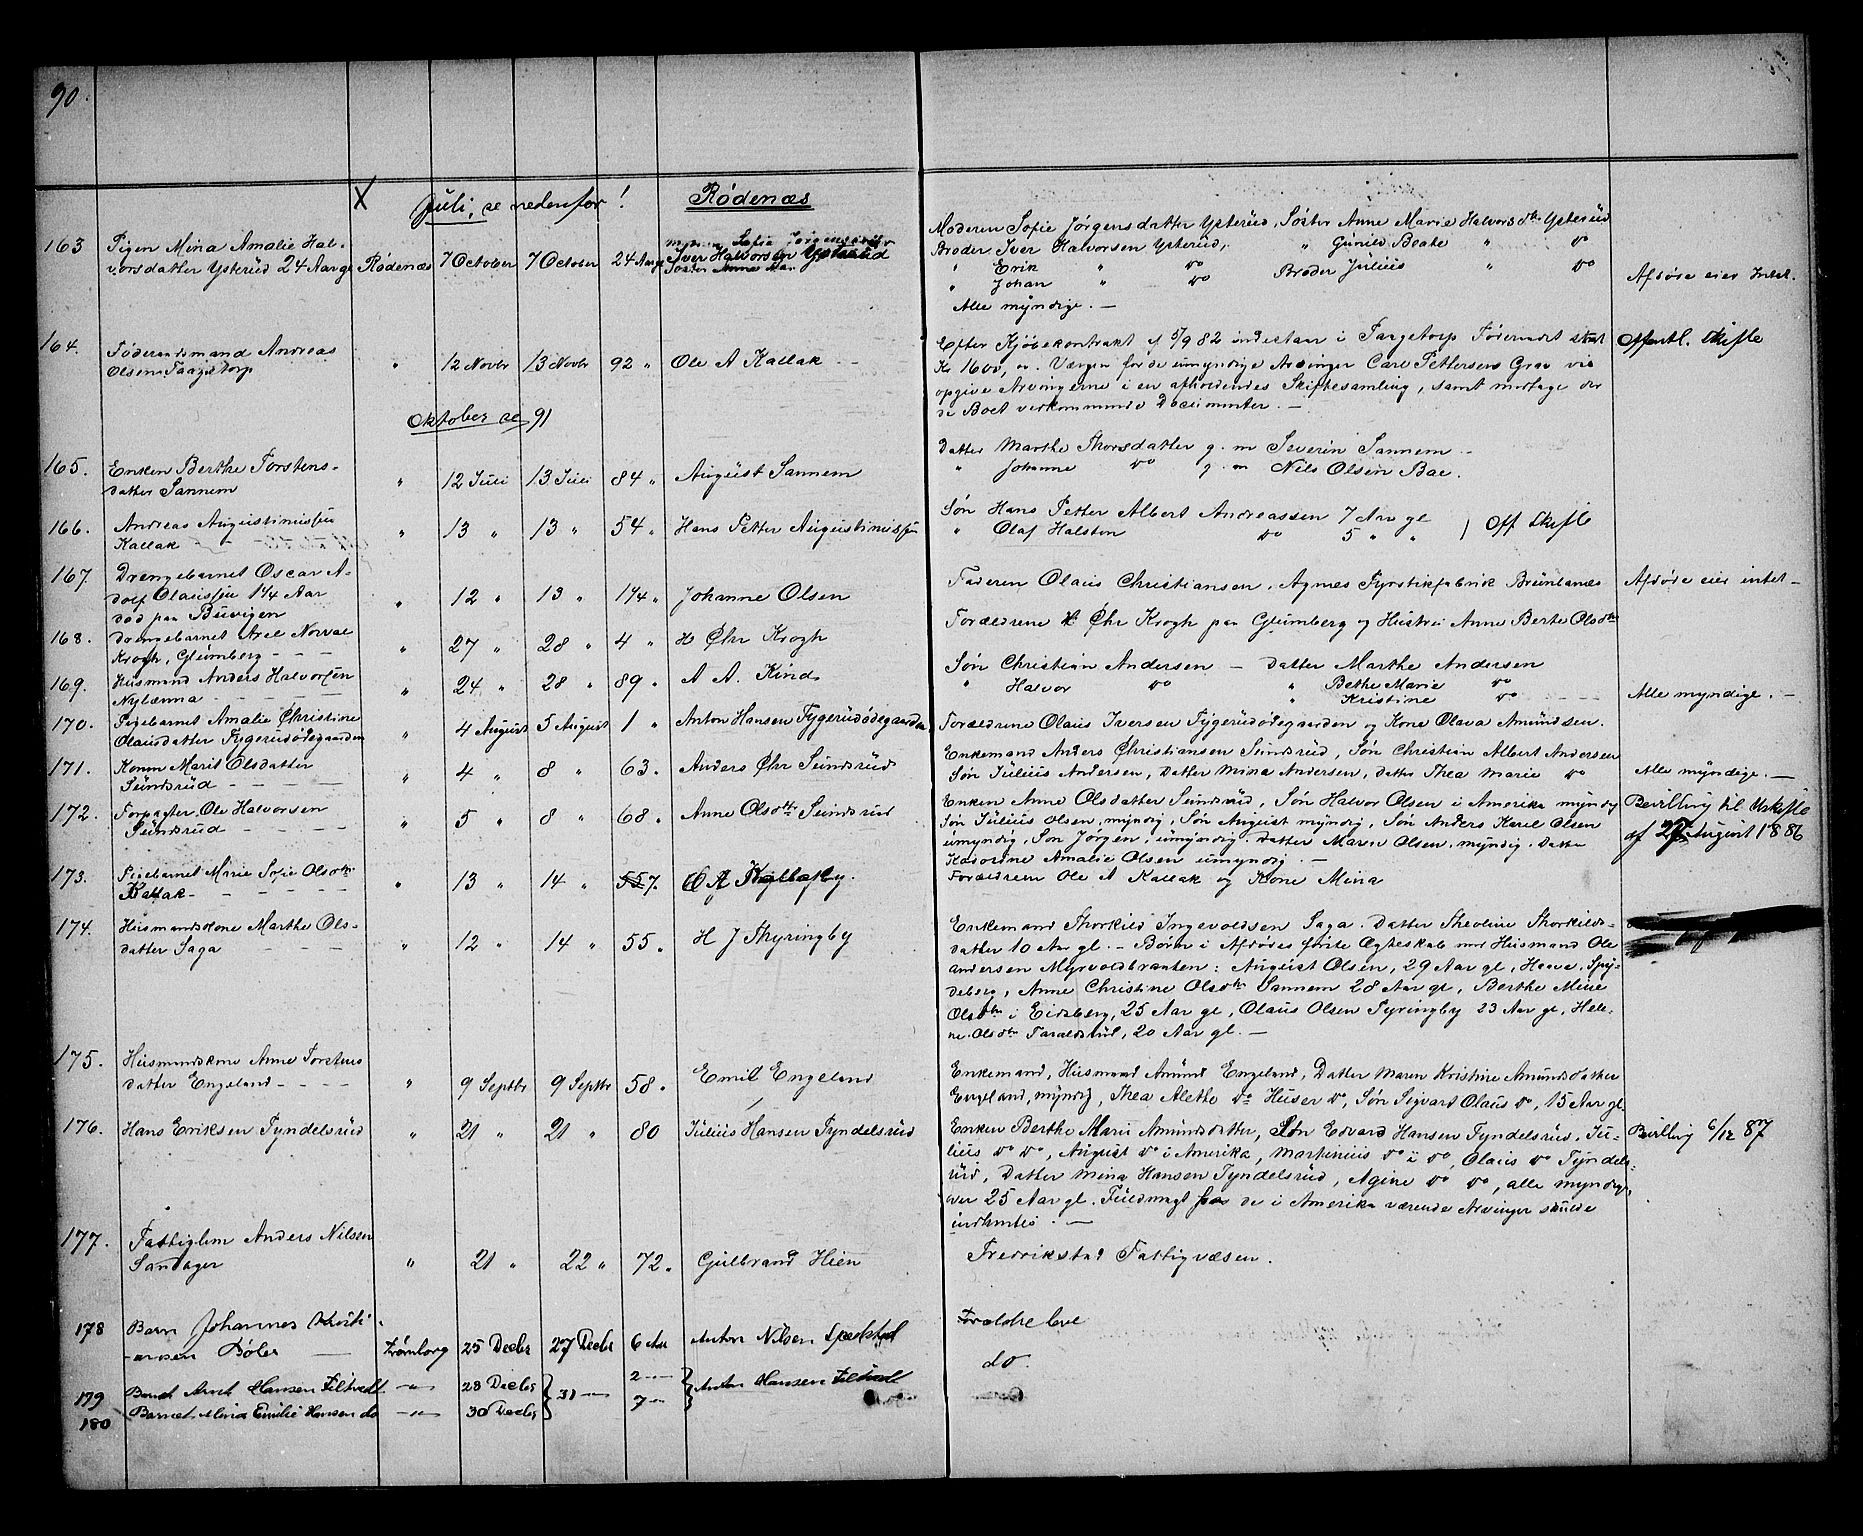 90.
X Juli, se nedenfor! Rødenæs
163 Pigen Mina Amalie Hal-
vorsdatter Ysterüd 24 Aargl Rødenæs 7 October 7 October 24 Aar gl
Moderen Sofie Jørgensdatter
Iver Halvorsen Ysterud
Søster Anne Mar
Moderen Sofie Jørgensdatter Ysterüd, Søster Anne Marie Halvorsdtr Ysterüd
Broder Iver Halvorsen Ysterüd, " Günild Beate " do
" Erik " do Broder Jülius " do
" Johan " do
Alle myndige. —
Afdøde eier Intet.
164. Føderaadsmand Andreas
Olsen Taagetorp " 12 Novbr 13 Novbr 92 " Ole A Kallak
Efter Kjøbekontrakt af 5/9 82 indestaar i Taagetorp Føderaadet
Kr 1600, Værgen for de umyndige Arvinger Carl Pettersen Grav vil
opgive Arvingerne i en afholdendes Skiftesamling, samt modtage de
de Boet vedkommende Documenter. —
Offentl. Skifte
Oktober se 91
165. Enken Berthe Torstens-
datter Sannem " 12 Juli 13 Juli 84 " August Sannem
Datter Marthe Thorsdatter g. m Severin Sannem
" Johanne do g. m Nils Olsen Bae.
166. Andreas Augustinussen
Kallak " 13 " 13 " 54 " Hans Petter Augustinussen
Søn Hans Petter Albert Andreassen 7 Aar gl
" Olaf Halsten do 5 " " } Off Skifte
167. Drengebarnet Oscar A-
dolf Olaussen 1 1/4 Aar
død paa Buvigen " 12 " 13 " 1 1/4 " Johanne Olsen
Faderen Olaus Christiansen, Agnes Fyrstikfabrik Brunlanæs
Afdøde eier intet —
168. Drengebarnet Axel Norval
Krogh, Glümberg " 27 " 28 " 4 " H Chr Krogh
Forældrene H Chr Krogh paa Glumberg og Hustru Anne Berte Olsdtr
169. Husmand Anders Halvorsen
Nylænna " 24 " 28 " 89 " A A. Kind
Søn Christian Andersen — Datter Marthe Andersen
" Halvor do " Bethe Marie do
" Kristine do
Alle myndige. —
170. Pigebarnet Amalie Christine
Olausdatter Tygerudødegaarden " 4 August 5 August 1 " Anton Hansen Tygerudødegaarden
Forældrene Olaus Iversen Tygerudødegaarden og Kone Olava Amundsen.
171. Konen Marit Olsdatter
Sundsrüd " 4 " 8 " 63 " Anders Chr Sundsrud
Enkemand Anders Christiansen Sundsrud, Søn Christian Albert Andersen
Søn Julius Andersen, Datter Mina Andersen, Datter Thea Marie do
Alle myndige. —
172. Forpagter Ole Halvorsen
Sundsrud " 5 " 8 " 68 " Anne Olsdtr Sundsrud
Enken Anne Olsdatter Sundsrud, Søn Halvor Olsen i Amerika myndig
Søn Julius Olsen, myndig, Søn August myndig, Søn Anders Karel Olsen
umyndig, Søn Jørgen, umyndig. Datter Maren Olsen, myndig. Datter
Amalie Olsen umyndig. —
Bevilling til Uskifte
af 27 August 1886
173. Pigebarnet Marie Sofie Olsdtr
Kallak " 13 " 14 " 7. O A Kallak
Forældrene Ole A Kallak og Kone Mina
174. Husmandskone Marthe Ols-
datter Saga " 12 " 14 " 55 " H J Thyringby
Enkemand Thorkild Ingevoldsen Saga. Datter Theoline Thorkilds-
datter 10 Aar gl. — Børn i Afdødes første Ægteskab med Husmand Ole
Andersen Myrvoldbraaten: August Olsen, 29 Aar gl, Haave, Spy-
deberg, Anne Christine Olsdtr Sannem 28 Aar gl, Berthe Mine
Olsdtr i Eidsberg, 25 Aar gl, Olaus Olsen Tyringby 23 Aar gl, Hele-
ne Olsdtr Taraldsrud, 20 Aar gl. —
175. Husmandskone Anne Torstens
datter Engeland " 9 Septbr 9 Septbr 58 " Emil Engeland
Enkemand, Husmand Amünd Engeland, Datter Maren Kristine Amundsdatter
Engeland, myndig, Thea Alethe do Huser do, Søn Sigvart Olaus do, 15 Aar gl.
176. Hans Eriksen Tyndelsrüd " 21 " 21 " 80 Julius Hansen Tyndelsrüd
Enken Berthe Marie Amundsdatter, Søn Edvard Hansen Tyndelsrud, Ju-
lius do do, August do i Amerika, Martinius do i do, Olaus do Tyndels-
rüd, Datter Mina Hansen Tyndelsrüd, Agine do do, alle myndige,
over 25 Aar gl. Fuldmagt for de i Amerika værende Arvinger skulde
indhentes. —
Bevilling 6/12 87
177. Fattiglem Anders Nilsen
Sandager " 21 " 22 " 72 " Gulbrand Hien
Fredrikstad Fattigvæsen.
178 Barn Johannes Kristi-
ansen Bøler — Trømborg 25 Decbr 27 Decbr 6 Aar Anton Nilsen
Forældre leve
179 Barnet Arnt Hansen Filtvedt —"— 28 Decbr } 31 — 2 —"— } Anton Hansen Filtvedt
do.
180 Barnet Mina Emilie Hansen do —"— 30 Decbr 7 —"—